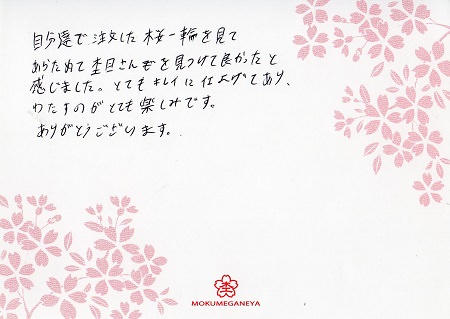 自分達で注文した桜一輪を見て
あらためて杢目さんを見つけて良かったと
感じました。とてもキレイに仕上げてあり、
わたすのがとても楽しみです。
ありがとうございます。
杢
MOKUMEGANEYA